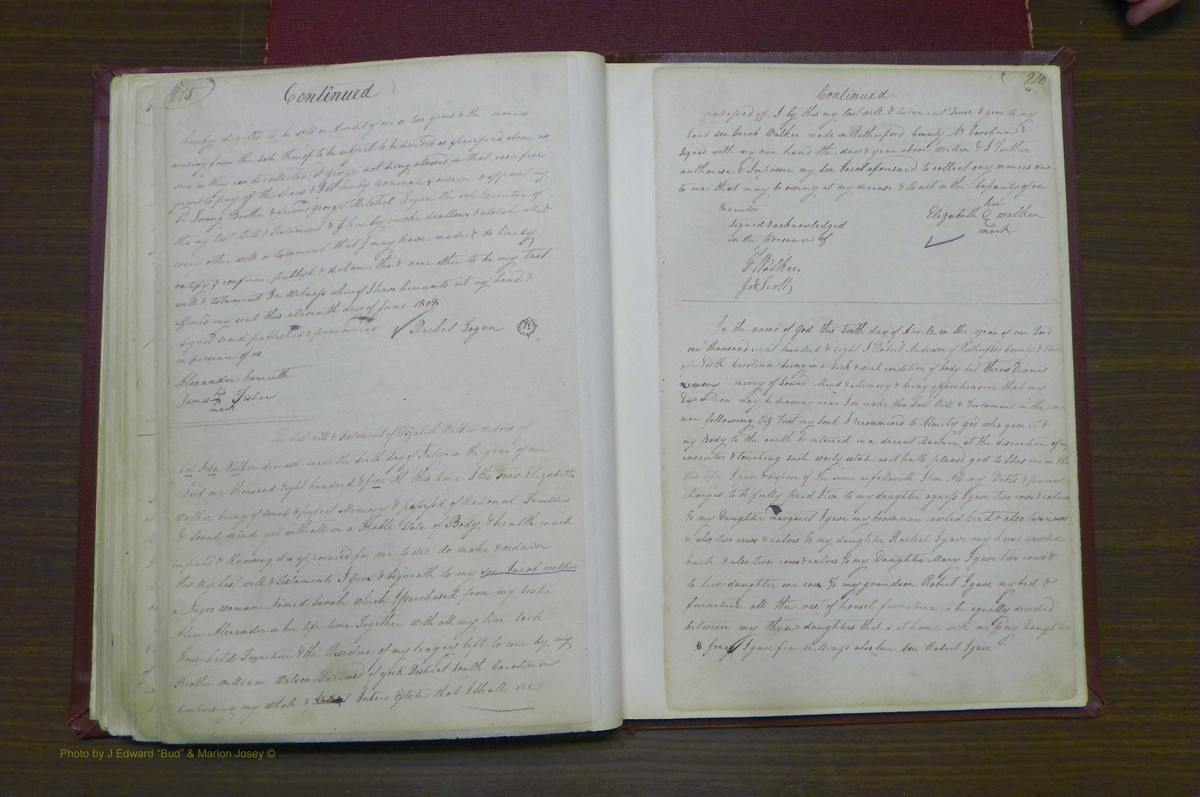 215
Continued
hereby directed to be sold on a credit of one or two years & the monies
arising from the sale thereof to be subject to be divided as aforesaid above as
soon as they can be collected
years to pay of the
Loving Brother & friend george Mitchel Logan the sole Executor of
this my last Will & Testament & I hereby revoke disallow & abolish all &
every other will or testament that I may have made & do hereby
ratify & confirm publish & declare this & none other to be my last
will & testament In Witness whereof I have hereunto set my hand &
affixed my seal this eleventh day of June 1808
Signed seald published & pronounced
in presence of us
Rachel Logan
Alexander
James his mark Fisher
The last will & testament of Elizabeth Walker widow of
John Walker deceased made the Sixth day of July in the year of our
Lord one thousand Eight hundred & five At this time I the said Elizabeth
Walker being of sound & perfect Memory & possessed of Rational Faculties
& sound mind yet withall in a Feable State of Body & health much
impaired & Knowing it is appointed for me to die do make & ordain
this my last will & testament I Give & bequeath to my son Jacob walker
a Negro woman Named Sarah which I purchased from my sister
Alexander in her life time Together with all my live stock
Household Furniture & the Residue of my legacy left to me by my
Brother William Watson Deceased of york District South Carolina
composing my whole & Intire Estate that I shall die
210
Continued
possessed off I by this my last will & testament Devise & give to my
Said son Jacob Walker made in Rutherford County No Carolina &
Signed with my own hand the day & year above written & I further
authorise & Impower my son Jacob aforesaid to collect any monies due
to me that may be owing at my decease & to act in the Capacity of an
Executor
Signed & acknowledged
in the presence of
Elizabeth her E mark walker
F Walker
Jas Scott
In the name of God this Sixth day of Aprile in the year of our Lord
one thousand eight hundred & eight I Robert Anderson of Rutherford County & State
of North Carolina being in a Sick & weak condition of body but threw Divine
mercy of Sound Mind & Memory & being apprehensive that my
may be drawing near I do make this last Will & Testament in the
ner following Viz first my Soul I recommend to Almity god who gave it &
my Body to the earth to be intered in a decent Manner at the discretion of my
executor & touching such worly estate as it hath please god to bless me in
this life I gave & dispose of the same as followeth Item All my Debts & funeral
charges to be fully paid Item to my daughter agness I gave two cows & calves
To my Daughter margaret I gave my brown mare
& also two cows & calves to my daughter Rachel I gave my horse
& also two cows & calves To my Daughter Mary I gave two cows &
to her daughter one cow To my grandson Robert I gave my bed &
furniture all the rest of housel furniture to be equally devided
between my three daughters that is at home with me to my Daughter
Jeney I gave five shillings also son Robert I gave
Photo by J Edward "Bud" & Marion Josey ©